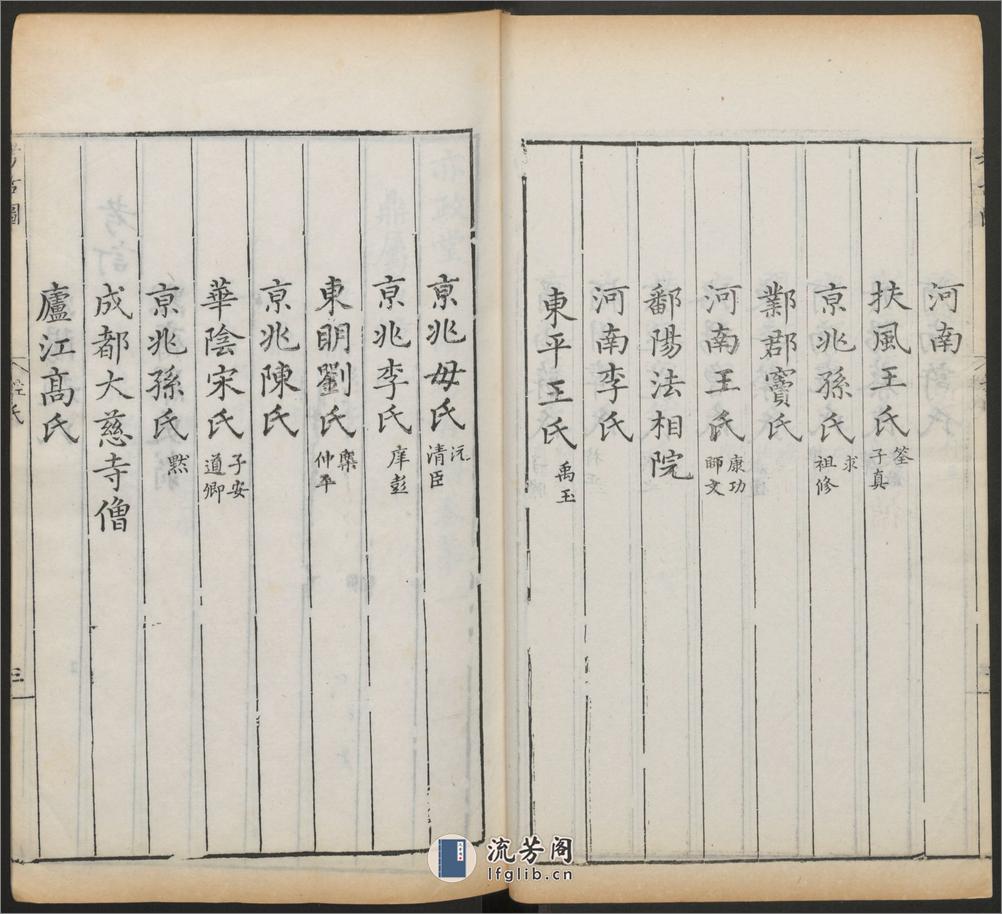 河南
扶風王氏 筌 子真
京兆孫氏 求 祖修
鄴郡竇氏
河南王氏 康功 師文
鄱陽法相院
河南李氏
東平王氏 禹玉
京兆毋氏 沅 清臣
京兆李氏 庠彭
東明劉氏 槩 仲平
京兆陳氏
華陰宋氏 子安 道卿
京兆孫氏 默
成都大慈寺僧
廬江髙氏
考古圖
姓氏
三
流芳阁
lfglib.cn